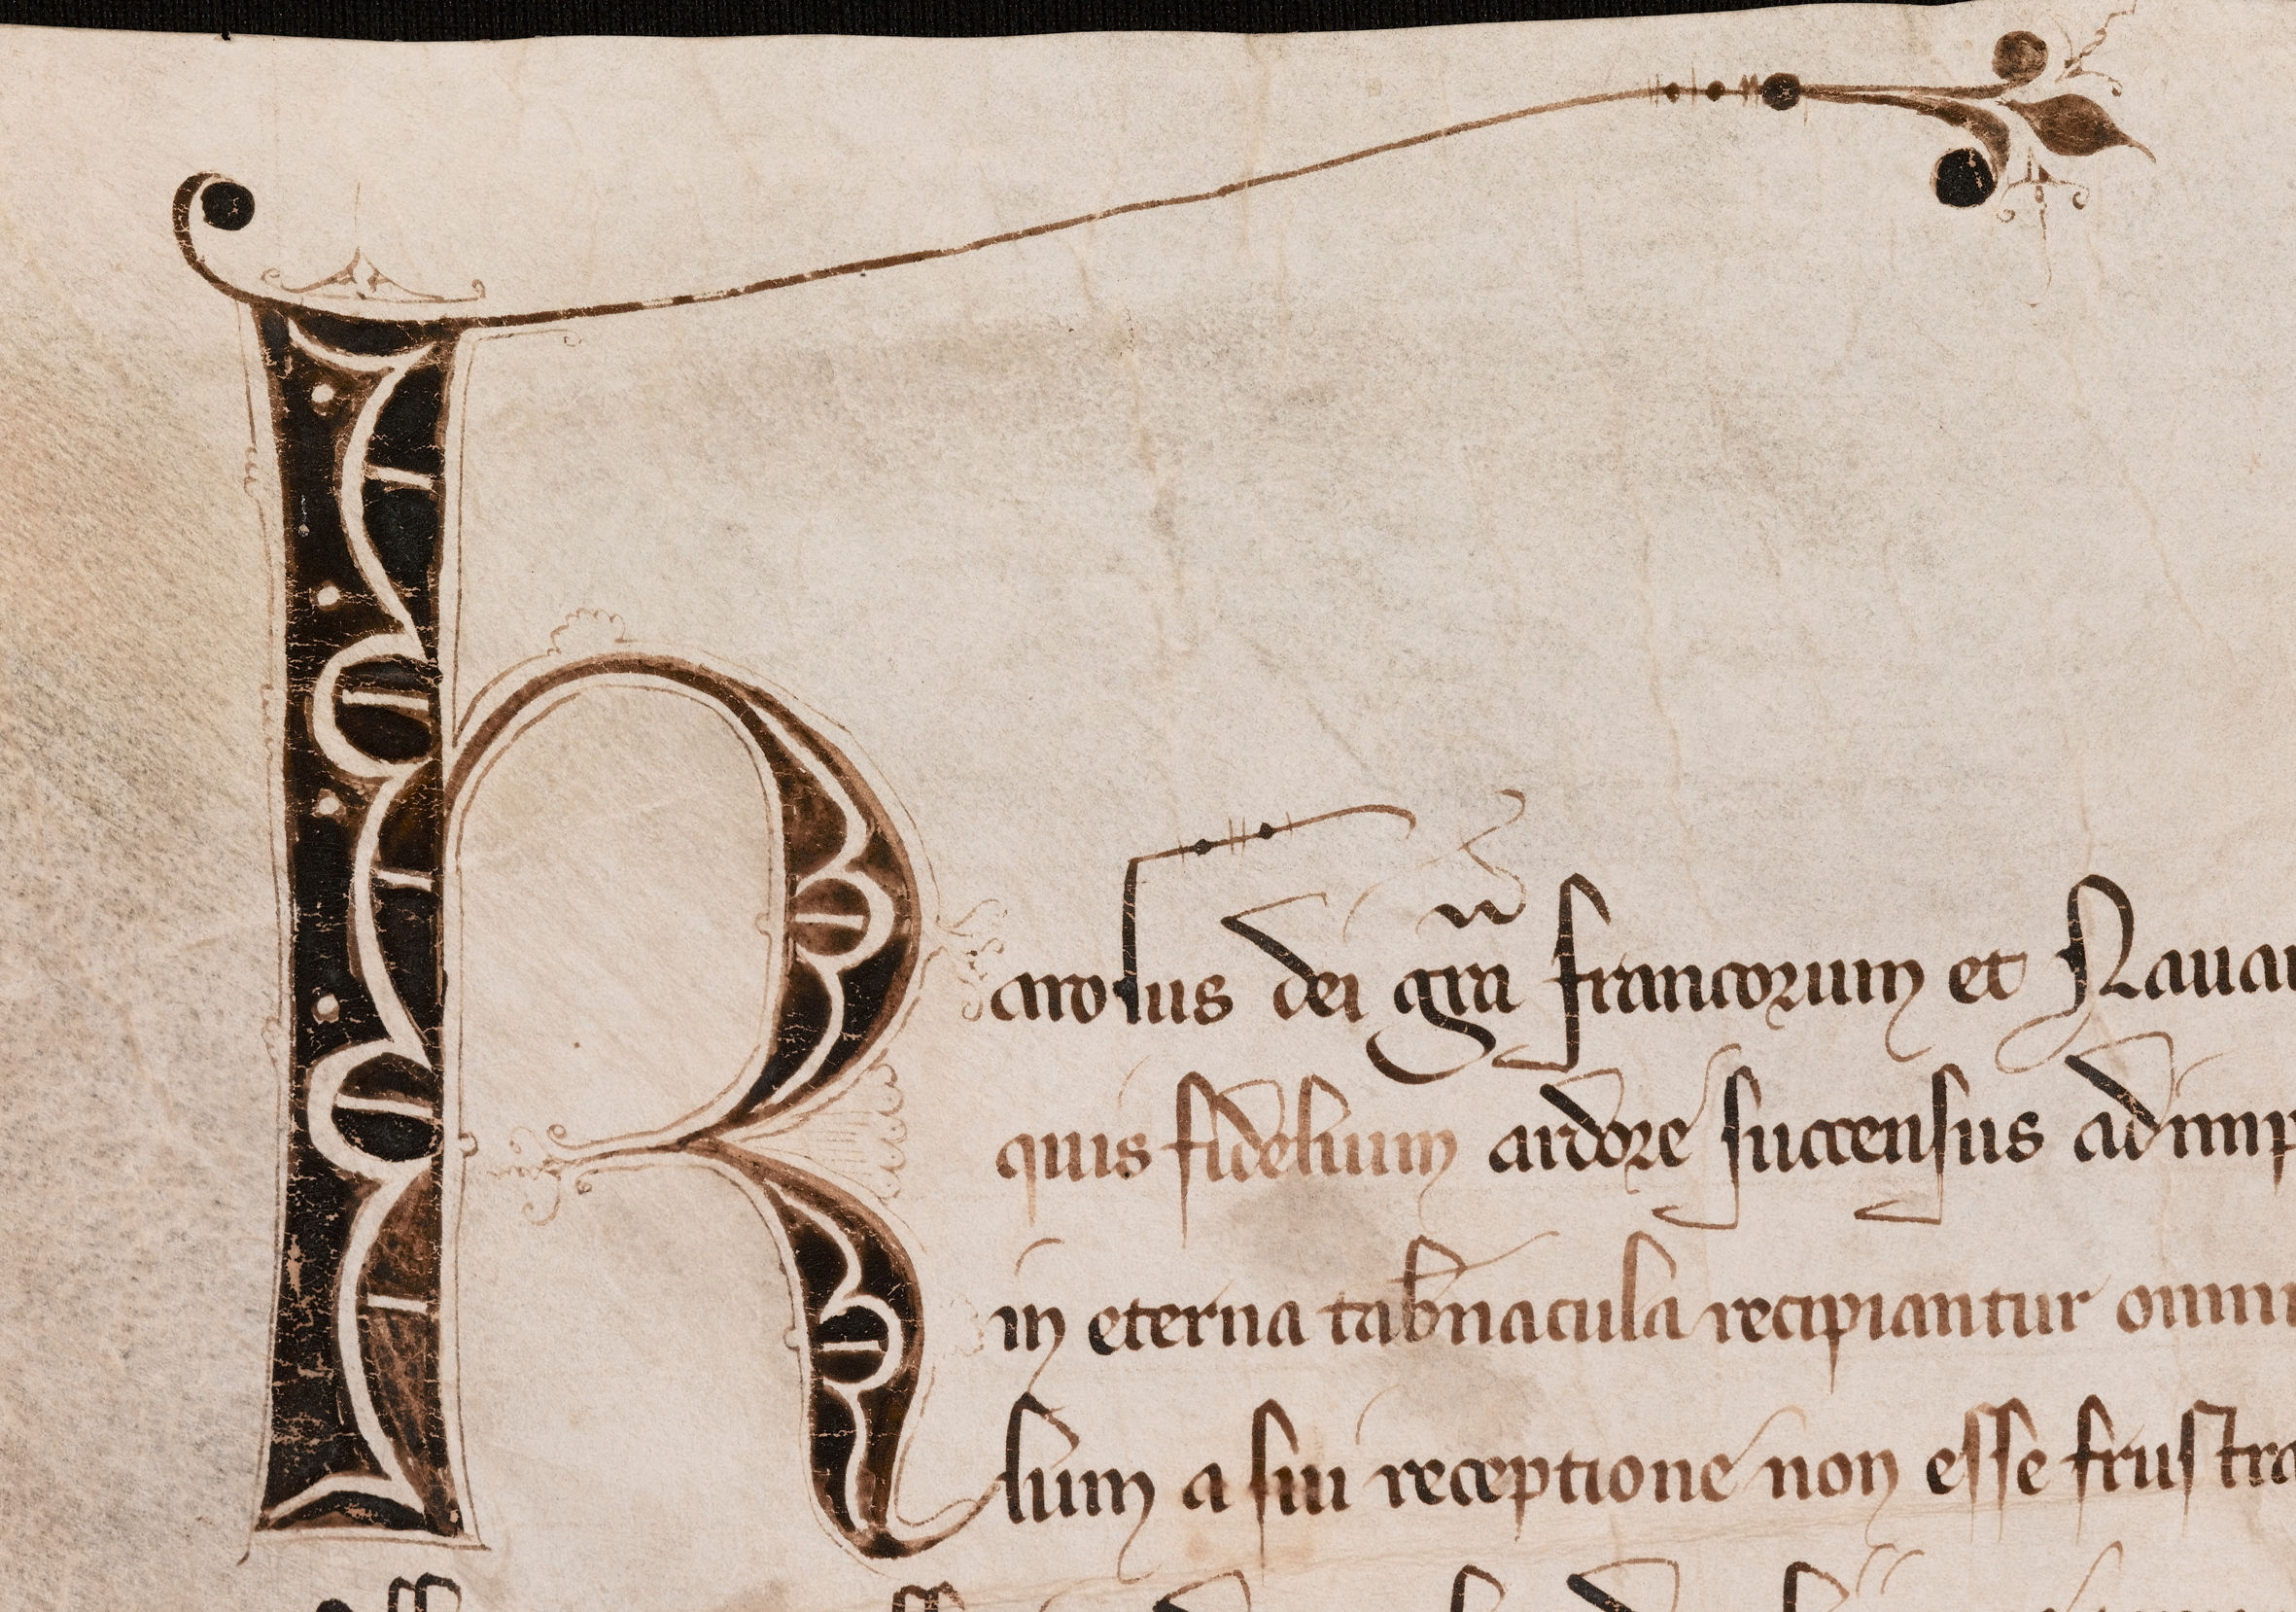 Karolus dei gra francorum et Nauar
quis fidelium ardore succensus adimp
in eterna tabnacula recipiantur omni
lum a sui receptione non esse frustra